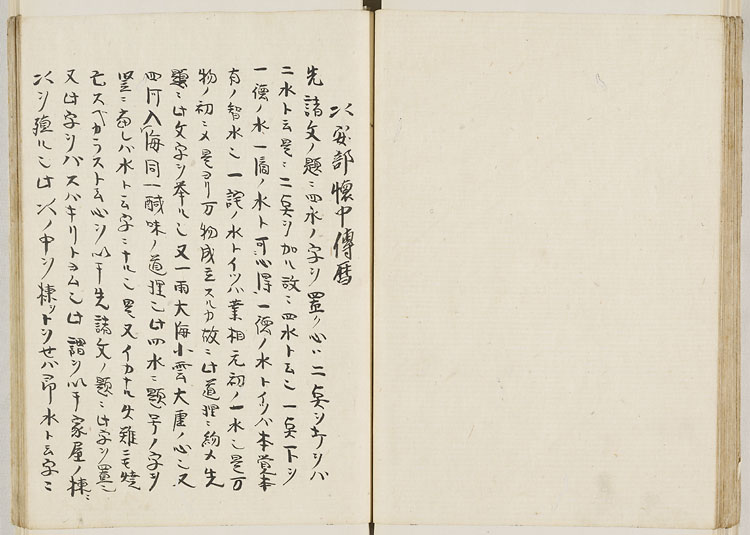 安部懐中傳暦
先諸文ノ題ニ四水ノ字ヲ置ク心ハ二点ヲキヲバ
二水ト云是ニ二点ヲ加ル故ニ四水ト云也一点一トシ
一德ノ水一滴ノ水ト可心得一德ノ水トイツハ本覚本
有ノ智水也一詫ノ水トイツハ業相元初ノ一水也是万
物ノ初ニメ是ヨリ万物成立スルカ故ニ此道理ニ約メ先
題ニ此文字ヲ挙ル也又一雨大海小雲大重ノ心也又
四河入海同一鹹味ノ道理也此四水ニ題号ノ字ヲ
竪ニ書レバ水ト云字ニナル也是又イカナル失難ニモ焼
亡スベカラスト云心ヲ以テ先諸文ノ題ニ此字ヲ置也
又此字ヲバスバキリトヨム也此謂ヲ以テ家屋ノ棟ニ
ヲ殖ル也此ノ中ヲ棟ットヲせバ昴水ト云字ニ